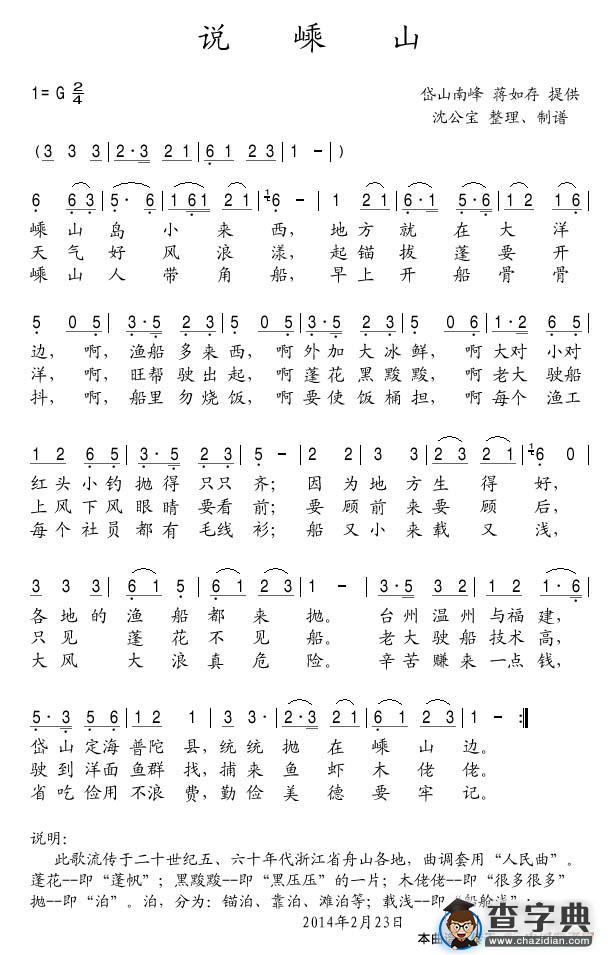 说 嵊 山
1=G 2/4
岱山南峰 蒋如存 提供
沈公宝 整理、制谱
(3 3 3 | 2·3 2 1 | 6 1 2 3 | 1 - | )
6 6 3 | 5· 6 | 1 6 1 2 1 | 1 6 - | 1 2 1 | 6·1 5·6 | 1 2 1 |
嵊 山 岛 小 来 西, 地 方 就 在 大 洋
天 气 好 风 浪 漾, 起 锚 拔 蓬 要 开
嵊 山 人 带 角 船, 早 上 开 船 骨 骨
5 0 5 | 3·5 2 3 | 5 0 5 | 3·5 2 3 | 5 0 6 | 1·2 6 5 |
边, 啊, 渔船 多 来 西, 啊 外 加 大 冰 鲜, 啊 大对 小对
洋, 啊, 旺帮 驶 出 起, 啊 蓬 花 黑 黢黢, 啊 老大 驶船
抖, 啊, 船里 勿 烧 饭, 啊 要 使 饭 桶 担, 啊 每个 渔工
1 2 6 5 | 3·5 2 3 | 5 - | 2 2 | 3 3 | 2 3 2 1 | 1 6 0 |
红 头 小 钓 抛 得 只 只 齐; 因 为 地 方 生 得 好,
上 风 下 风 眼 睛 要 看 前; 要 顾 前 来 要 顾 后,
每 个 社 员 都 有 毛 线 衫; 船 又 小 来 载 又 浅,
3 3 3 | 6 1 5 | 6 1 2 3 | 1 - | 3·5 3 2 | 1 2 | 1·6 |
各 地 的 渔 船 都 来 抛。 台 州 温 州 与 福 建,
只 见 蓬 花 不 见 船。 老 大 驶 船 技 术 高,
大 风 大 浪 真 危 险。 辛 苦 赚 来 一 点 钱,
5·3 5 6 | 1 2 1 | 3 3· | 2·3 2 | 6 1 2 3 | 1 - :|
岱 山 定 海 普 陀 县, 统 统 抛 在 嵊 山 边。
驶 到 洋 面 鱼 群 找, 捕 来 鱼 虾 木 佬 佬。
省 吃 俭 用 不 浪 费, 勤 俭 美 德 要 牢 记。
说明:
此歌流传于二十世纪五、六十年代浙江省舟山各地,曲调套用“人民曲”。
蓬花--即“蓬帆”;黑黢黢--即“黑压压”的一片;木佬佬--即“很多很多”
抛--即“泊”。泊,分为:锚泊、靠泊、滩泊等;载浅--即“船舱浅”;
2014年2月23日
本曲
查字典
www.chazidian.com